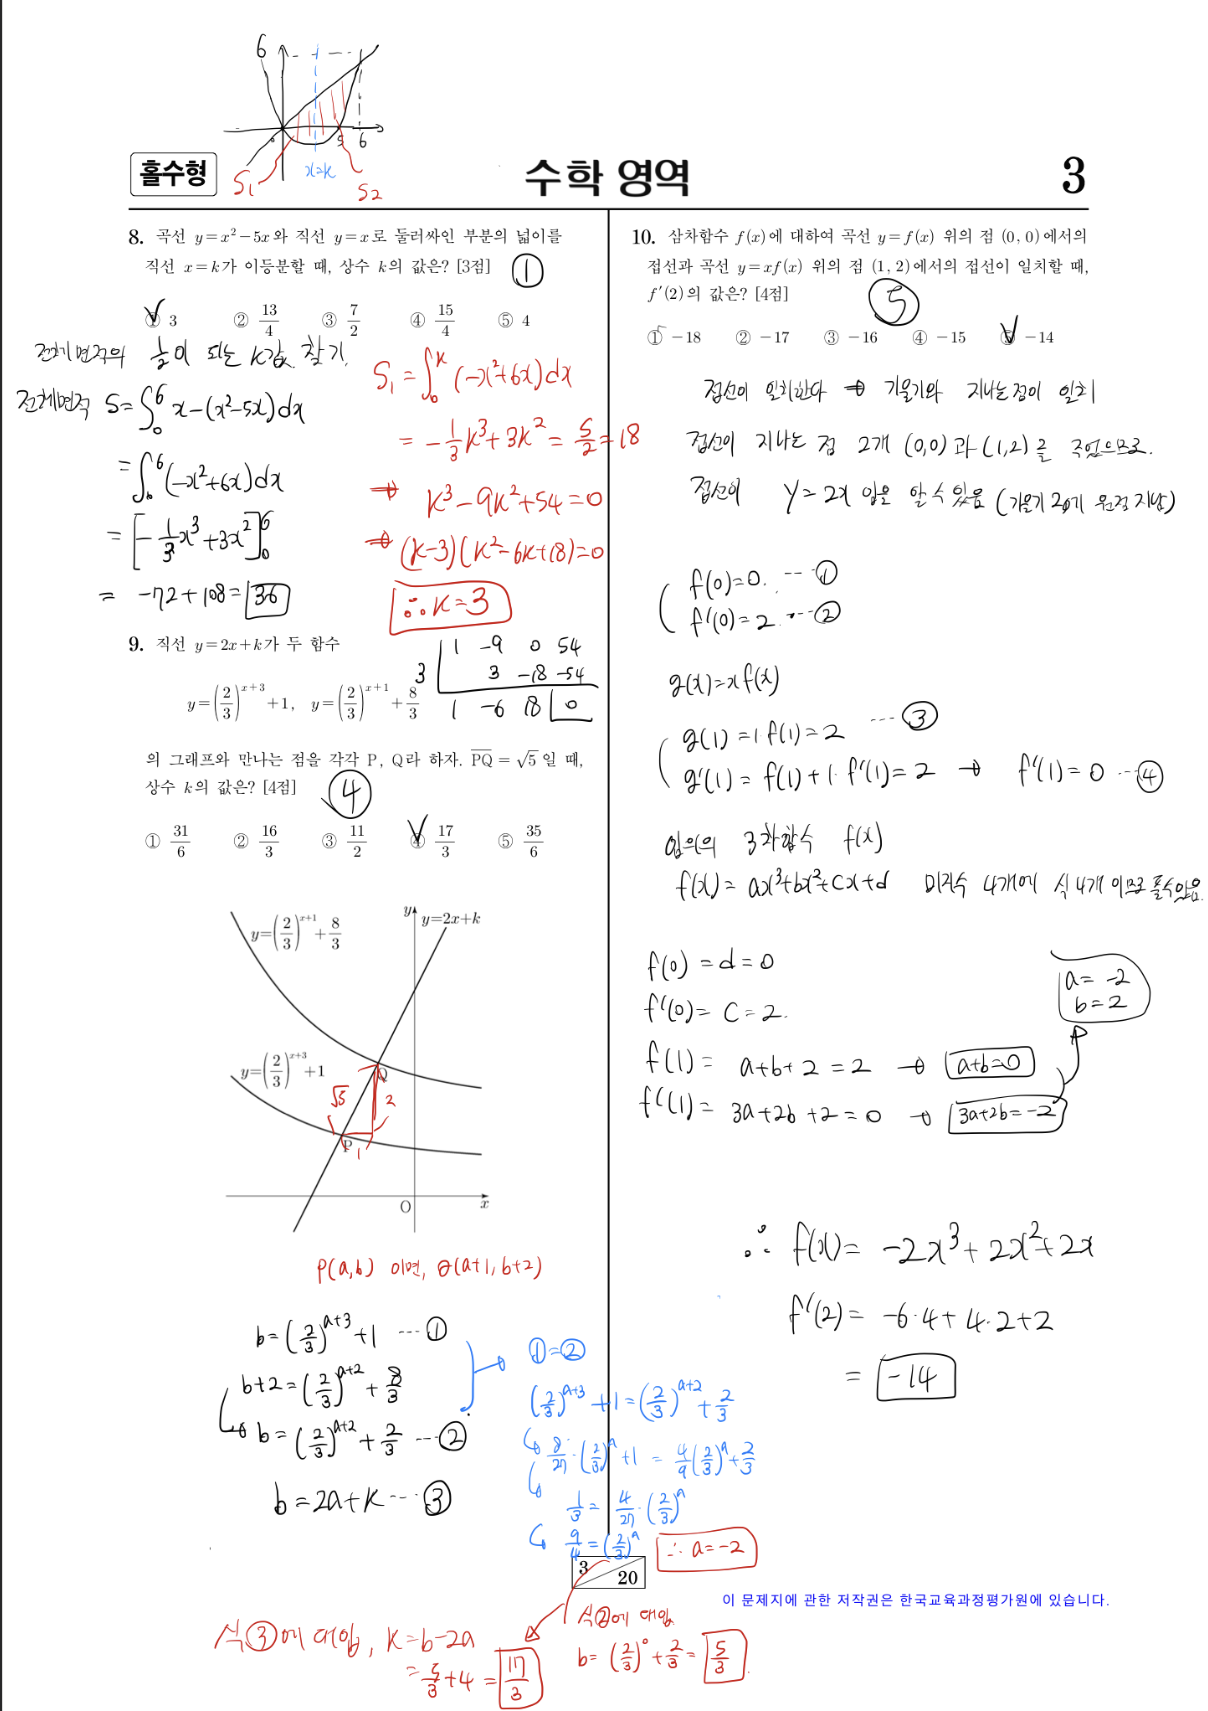 6
5 6
S₁ x=k S₂
홀수형
수학 영역
3
8. 곡선 y=x²−5x와 직선 y=x로 둘러싸인 부분의 넓이를
직선 x=k가 이등분할 때, 상수 k의 값은? [3점] ①
① 3 ② 13/4 ③ 7/2 ④ 15/4 ⑤ 4
전체면적의 ½이 되는 k값 찾기
전체면적 S=∫₀⁶ x−(x²−5x)dx
=∫₀⁶(−x²+6x)dx
=[−1/3x³+3x²]₀⁶
= −72+108=36
S₁=∫₀ᵏ(−x²+6x)dx
= −1/3k³+3k² = S/2=18
⇒ k³−9k²+54=0
⇒ (k−3)(k²−6k+18)=0
∴k=3
3 | 1 −9 0 54
3 −18 −54
1 −6 18 0
9. 직선 y=2x+k가 두 함수
y=(2/3)^(x+3)+1, y=(2/3)^(x+1)+8/3
의 그래프와 만나는 점을 각각 P, Q라 하자. PQ=√5일 때,
상수 k의 값은? [4점] ④
① 31/6 ② 16/3 ③ 11/2 ④ 17/3 ⑤ 35/6
y=(2/3)^(x+1)+8/3
y
y=2x+k
y=(2/3)^(x+3)+1
Q
√5 2
P 1
O x
P(a,b) 이면, Q(a+1, b+2)
b=(2/3)^(a+3)+1 ---①
b+2=(2/3)^(a+2)+8/3
b=(2/3)^(a+2)+2/3 ---②
b=2a+k---③
①=②
(2/3)^(a+3)+1=(2/3)^(a+2)+2/3
8/27·(2/3)^a+1 = 4/9(2/3)^a+2/3
1/3= 4/27·(2/3)^a
9/4=(2/3)^a
∴ a=−2
식②에 대입
b= (2/3)⁰+2/3=5/3
식③에 대입, k=b−2a
=5/3+4=17/3
10. 삼차함수 f(x)에 대하여 곡선 y=f(x) 위의 점 (0, 0)에서의
접선과 곡선 y=xf(x) 위의 점 (1, 2)에서의 접선이 일치할 때,
f′(2)의 값은? [4점] ⑤
① −18 ② −17 ③ −16 ④ −15 ⑤ −14
접선이 일치한다 ⇒ 기울기와 지나는점이 일치
접선이 지나는 점 2개 (0,0)과 (1,2)를 주었으므로.
접선이 y=2x 임을 알 수 있음 (기울기 2이기 원점지남)
f(0)=0. ---①
f′(0)=2. ---②
g(x)=xf(x)
g(1)=1·f(1)=2 ---③
g′(1)=f(1)+1·f′(1)=2 → f′(1)=0 --④
임의의 3차함수 f(x)
f(x)=ax³+bx²+cx+d 미지수 4개에 식4개 이므로 풀수있음.
f(0)=d=0
f′(0)= c=2.
f(1)= a+b+2=2 → a+b=0
f′(1)= 3a+2b+2=0 → 3a+2b=−2
a= −2
b=2
∴ f(x)= −2x³+2x²+2x
f′(2)= −6·4+4·2+2
= −14
3
20
이 문제지에 관한 저작권은 한국교육과정평가원에 있습니다.